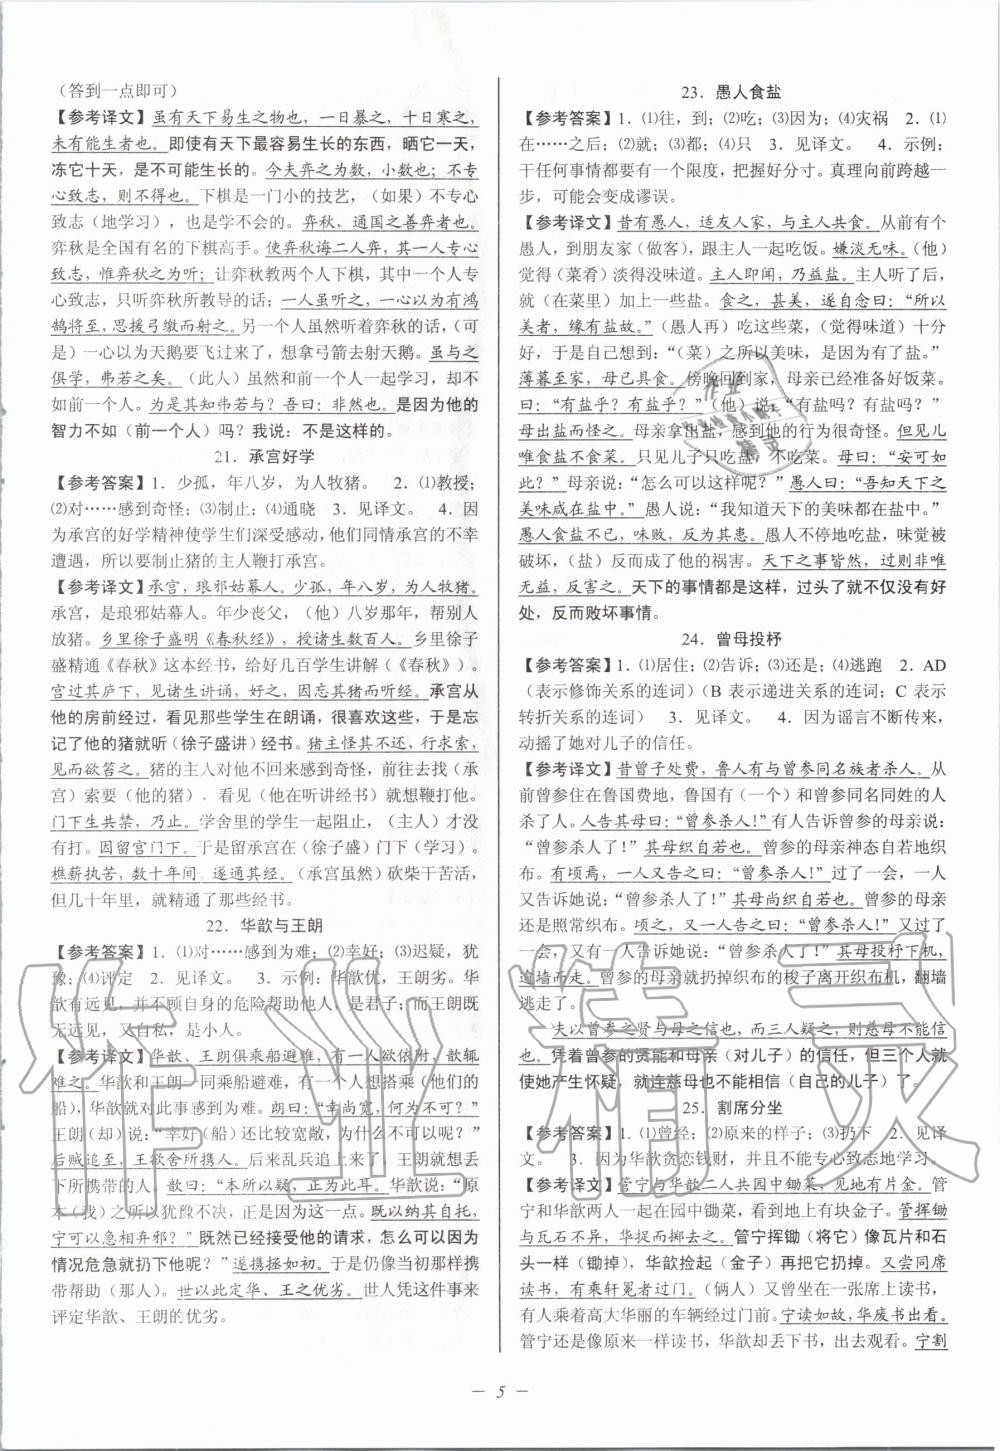 （答到一点即可）
【参考译文】虽有天下易生之物也，一日暴之，十日寒之，
未有能生者也。即使有天下最容易生长的东西，晒它一天，
冻它十天，是不可能生长的。今夫弈之为数，小数也；不专
心致志，则不得也。下棋是一门小的技艺，（如果）不专心
致志（地学习），也是学不会的。弈秋，通国之善弈者也。
弈秋是全国有名的下棋高手。使弈秋诲二人弈，其一人专心
致志，惟弈秋之为听；让弈秋教两个人下棋，其中一个人专
心致志，只听弈秋所教导的话；一人虽听之，一心以为有鸿
鹄将至，思援弓缴而射之。另一个人虽然听着弈秋的话，（可
是）一心以为天鹅要飞过来了，想拿弓箭去射天鹅。虽与之
俱学，弗若之矣。（此人）虽然和前一个人一起学习，却不
如前一个人。为是其知弗若与？吾曰：非然也。是因为他的
智力不如（前一个人）吗？我说：不是这样的。
21．承宫好学
【参考答案】1．少孤，年八岁，为人牧猪。 2．⑴教授；
⑵对……感到奇怪；⑶制止；⑷通晓 3．见译文。 4．因
为承宫的好学精神使学生们深受感动，他们同情承宫的不幸
遭遇，所以要制止猪的主人鞭打承宫。
【参考译文】承宫，琅邪姑幕人。少孤，年八岁，为人牧猪。
承宫，是琅邪姑幕人。年少丧父，（他）八岁那年，帮别人
放猪。乡里徐子盛明《春秋经》，授诸生数百人。乡里徐子
盛精通《春秋》这本经书，给好几百学生讲解（《春秋》）。
宫过其庐下，见诸生讲诵，好之，因忘其猪而听经。承宫从
他的房前经过，看见那些学生在朗诵，很喜欢这些，于是忘
记了他的猪就听（徐子盛讲）经书。猪主怪其不还，行求索，
见而欲笞之。猪的主人对他不回来感到奇怪，前往去找（承
宫）索要（他的猪），看见（他在听讲经书）想鞭打他。
门下生共禁，乃止。学舍里的学生一起阻止，（主人）才没
有打。因留宫门下。于是留承宫在（徐子盛）门下（学习）。
樵薪执苦，数十年间，遂通其经。（承宫虽然）砍柴干苦活，
但几十年里，就精通了那些经书。
22．华歆与王朗
【参考答案】1．⑴对……感到为难；⑵幸好；⑶迟疑，犹
豫；⑷评定 2．见译文。 3．示例：华歆优，王朗劣。华
歆有远见，并不顾自身的危险帮助他人，是君子；而王朗既
无远见，又自私，是小人。
【参考译文】华歆、王朗俱乘船避难，有一人欲依附，歆辄
难之。华歆和王朗一同乘船避难，有一个人想搭乘（他们的
船），华歆就对此事感到为难。朗曰：“幸尚宽，何为不可？”
王朗（却）说：“幸好（船）还比较宽敞，为什么不可以呢？”
后贼追至，王欲舍所携人。后来乱兵追上来了，王朗想丢
下所携带的人。歆曰：“本所以疑，正为此耳。华歆说：“原
本（我）之所以犹豫不决，正是因为这一点。既以纳其自托，
宁可以急相弃邪？”既然已经接受他的请求，怎么可以因为
情况危急就扔下他呢？”遂携拯如初。于是仍像当初那样携
带帮助（那人）。世以此定华、王之优劣。世人凭这件事来
评定华歆、王朗的优劣。
23．愚人食盐
【参考答案】1．⑴往，到；⑵吃；⑶因为；⑷灾祸 2．⑴
在……之后；⑵就；⑶都；⑷只 3．见译文。 4．示例：
干任何事情都要有一个限度，把握好分寸。真理向前跨越一
步，可能会变成谬误。
【参考译文】昔有愚人，适友人家，与主人共食。从前有个
愚人，到朋友家（做客），跟主人一起吃饭。嫌淡无味。（他）
觉得（菜肴）淡得没味道。主人即闻，乃益盐。主人听了后，
就（在菜里）加上一些盐。食之，甚美，遂自念曰：“所以
美者，缘有盐故。”（愚人再）吃这些菜，（觉得味道）十分
好，于是自己想到：“（菜）之所以美味，是因为有了盐。”
薄暮至家，母已具食。傍晚回到家，母亲已经准备好饭菜。
曰：“有盐乎？有盐乎？”（他）说：“有盐吗？有盐吗？”
母出盐而怪之。母亲拿出盐，却对他的行为很奇怪。但见儿
唯食盐不食菜。只见儿子只吃盐，不吃菜。母曰：“安可如
此？”母亲说：“怎么可以这样呢？”愚人曰：“吾知天下之
美味咸在盐中。”愚人说：“我知道天下的美味都在盐中。”
愚人食盐不已，味败，反为其患。愚人不停地吃盐，味觉被
破坏，（盐）反而成了他的祸害。天下之事皆然，过则非唯
无益，反害之。天下的事情都是这样，过头了就不仅没有好
处，反而败坏事情。
24．曾母投杼
【参考答案】1．⑴居住；⑵告诉；⑶还是；⑷逃跑 2．AD
（表示修饰关系的连词）（B 表示递进关系的连词；C 表示
转折关系的连词） 3．见译文。 4．因为谣言不断传来，
动摇了她对儿子的信任。
【参考译文】昔曾子处费，鲁人有与曾参同名族者杀人。从
前曾参住在鲁国费地，鲁国有（一个）和曾参同名同姓的人
杀了人。人告其母曰：“曾参杀人！”有人告诉曾参的母亲说：
“曾参杀人了！”其母织自若也。曾参的母亲神态自若地织
布。有顷焉，一人又告之曰：“曾参杀人！”一会儿，一人
又告诉她说：“曾参杀人了！”其母尚织自若也。曾参的母亲
还是照常织布。顷之，又一人告之曰：“曾参杀人！”又过了
一会，又有一人告诉她说：“曾参杀人了！”其母投杼下机，
逾墙而走。曾参的母亲就扔掉织布的梭子离开织布机，翻墙
逃走了。
夫以曾参之贤与母之信也，而三人疑之，则慈母不能信
也。凭着曾参的贤能和母亲（对儿子）的信任，但三个人就
使她产生怀疑，就连慈母也不能相信（自己的儿子）了。
25．割席分坐
【参考答案】1．⑴曾经；⑵原来的样子；⑶扔下 2．见译
文。 3．因为华歆贪恋钱财，并且不能专心致志地学习。
【参考译文】管宁与华歆二人共园中锄菜，见地有片金。管
宁和华歆两人一起在园中锄菜，见地上有块金子。管挥锄
与瓦石不异，华捉而掷去之。管宁挥锄（将它）像瓦片和石
头一样（锄掉），华歆捡起（金子）再把它扔掉。又尝同席
读书，有乘轩冕者过门。（俩人）又曾坐在一张席上读书，
有人乘着高大华丽的车辆经过门前。宁读如故，华废书出看。
管宁还是像原来一样读书，华歆却丢下书，出去观看。宁割
— 5 —
作业精灵